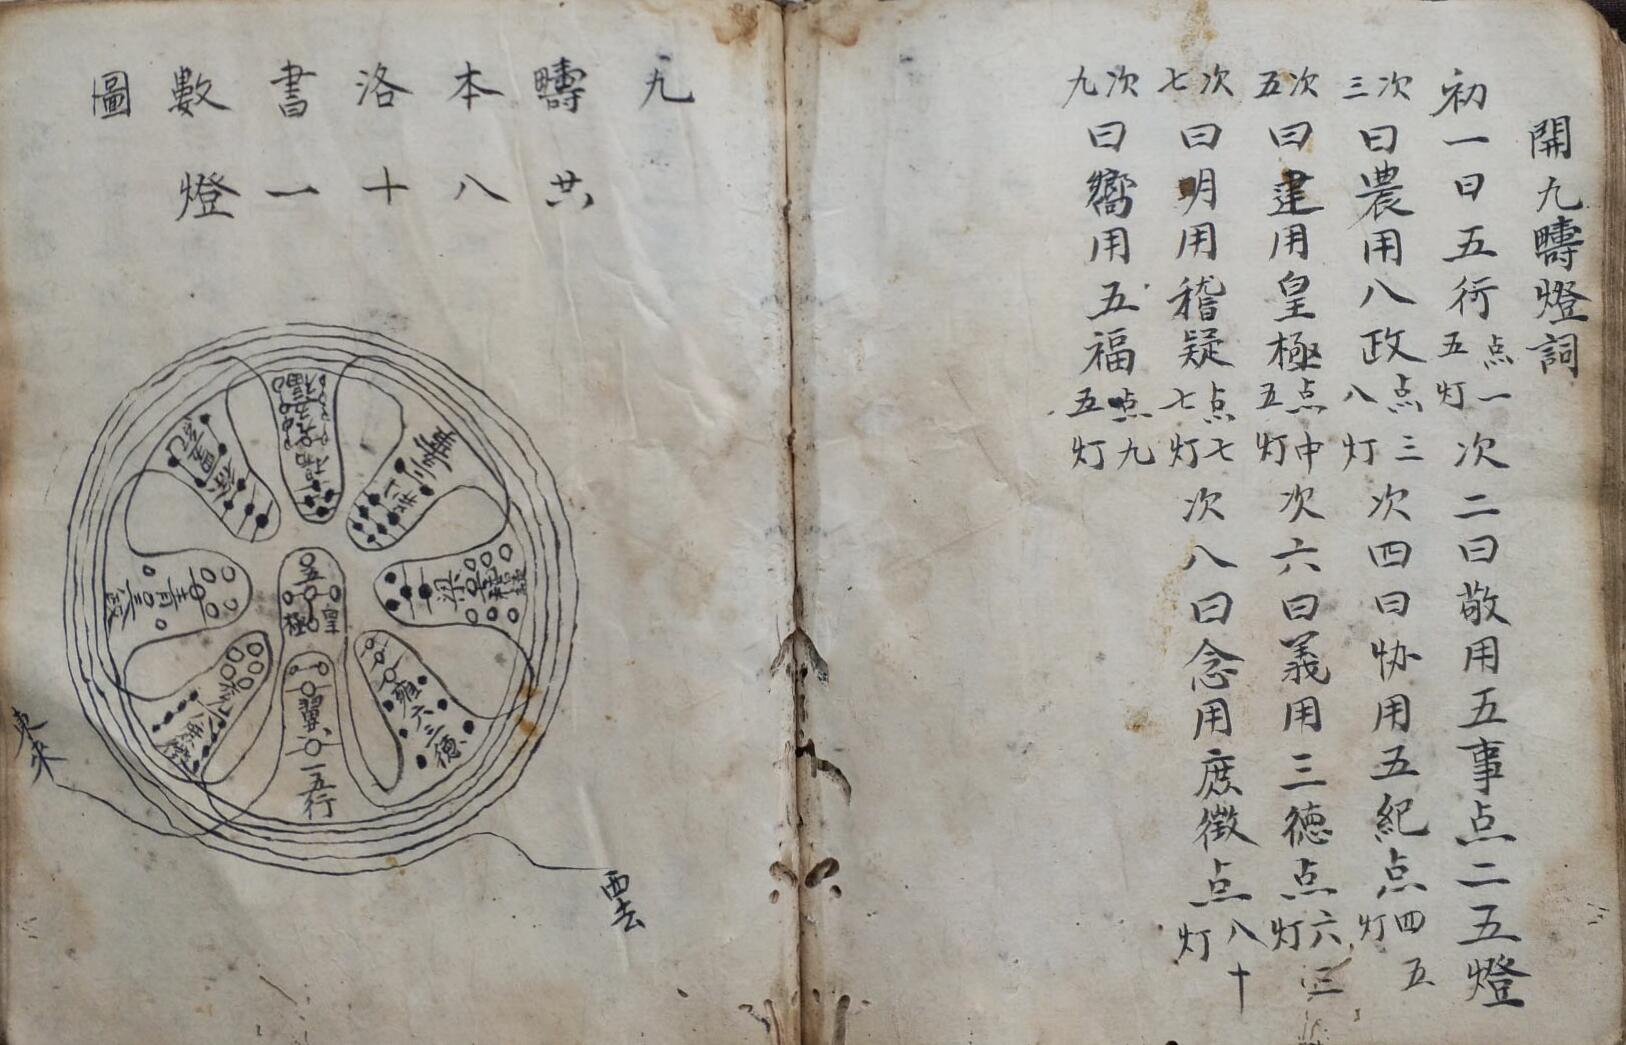 開九疇燈詞
初一曰五行点一五灯次二曰敬用五事点二五燈
次三曰農用八政点三八灯次四曰协用五紀点四五灯
次五曰建用皇極点中五灯次六曰義用三德点六三灯
次七曰明用稽疑点七七灯次八曰念用庶徵点八十灯
次九曰嚮用五福点九五灯
九
疇共
本八
洛十
書一
數燈
圖
五
皇極
翼
一五行
雍六三德
東來
西去